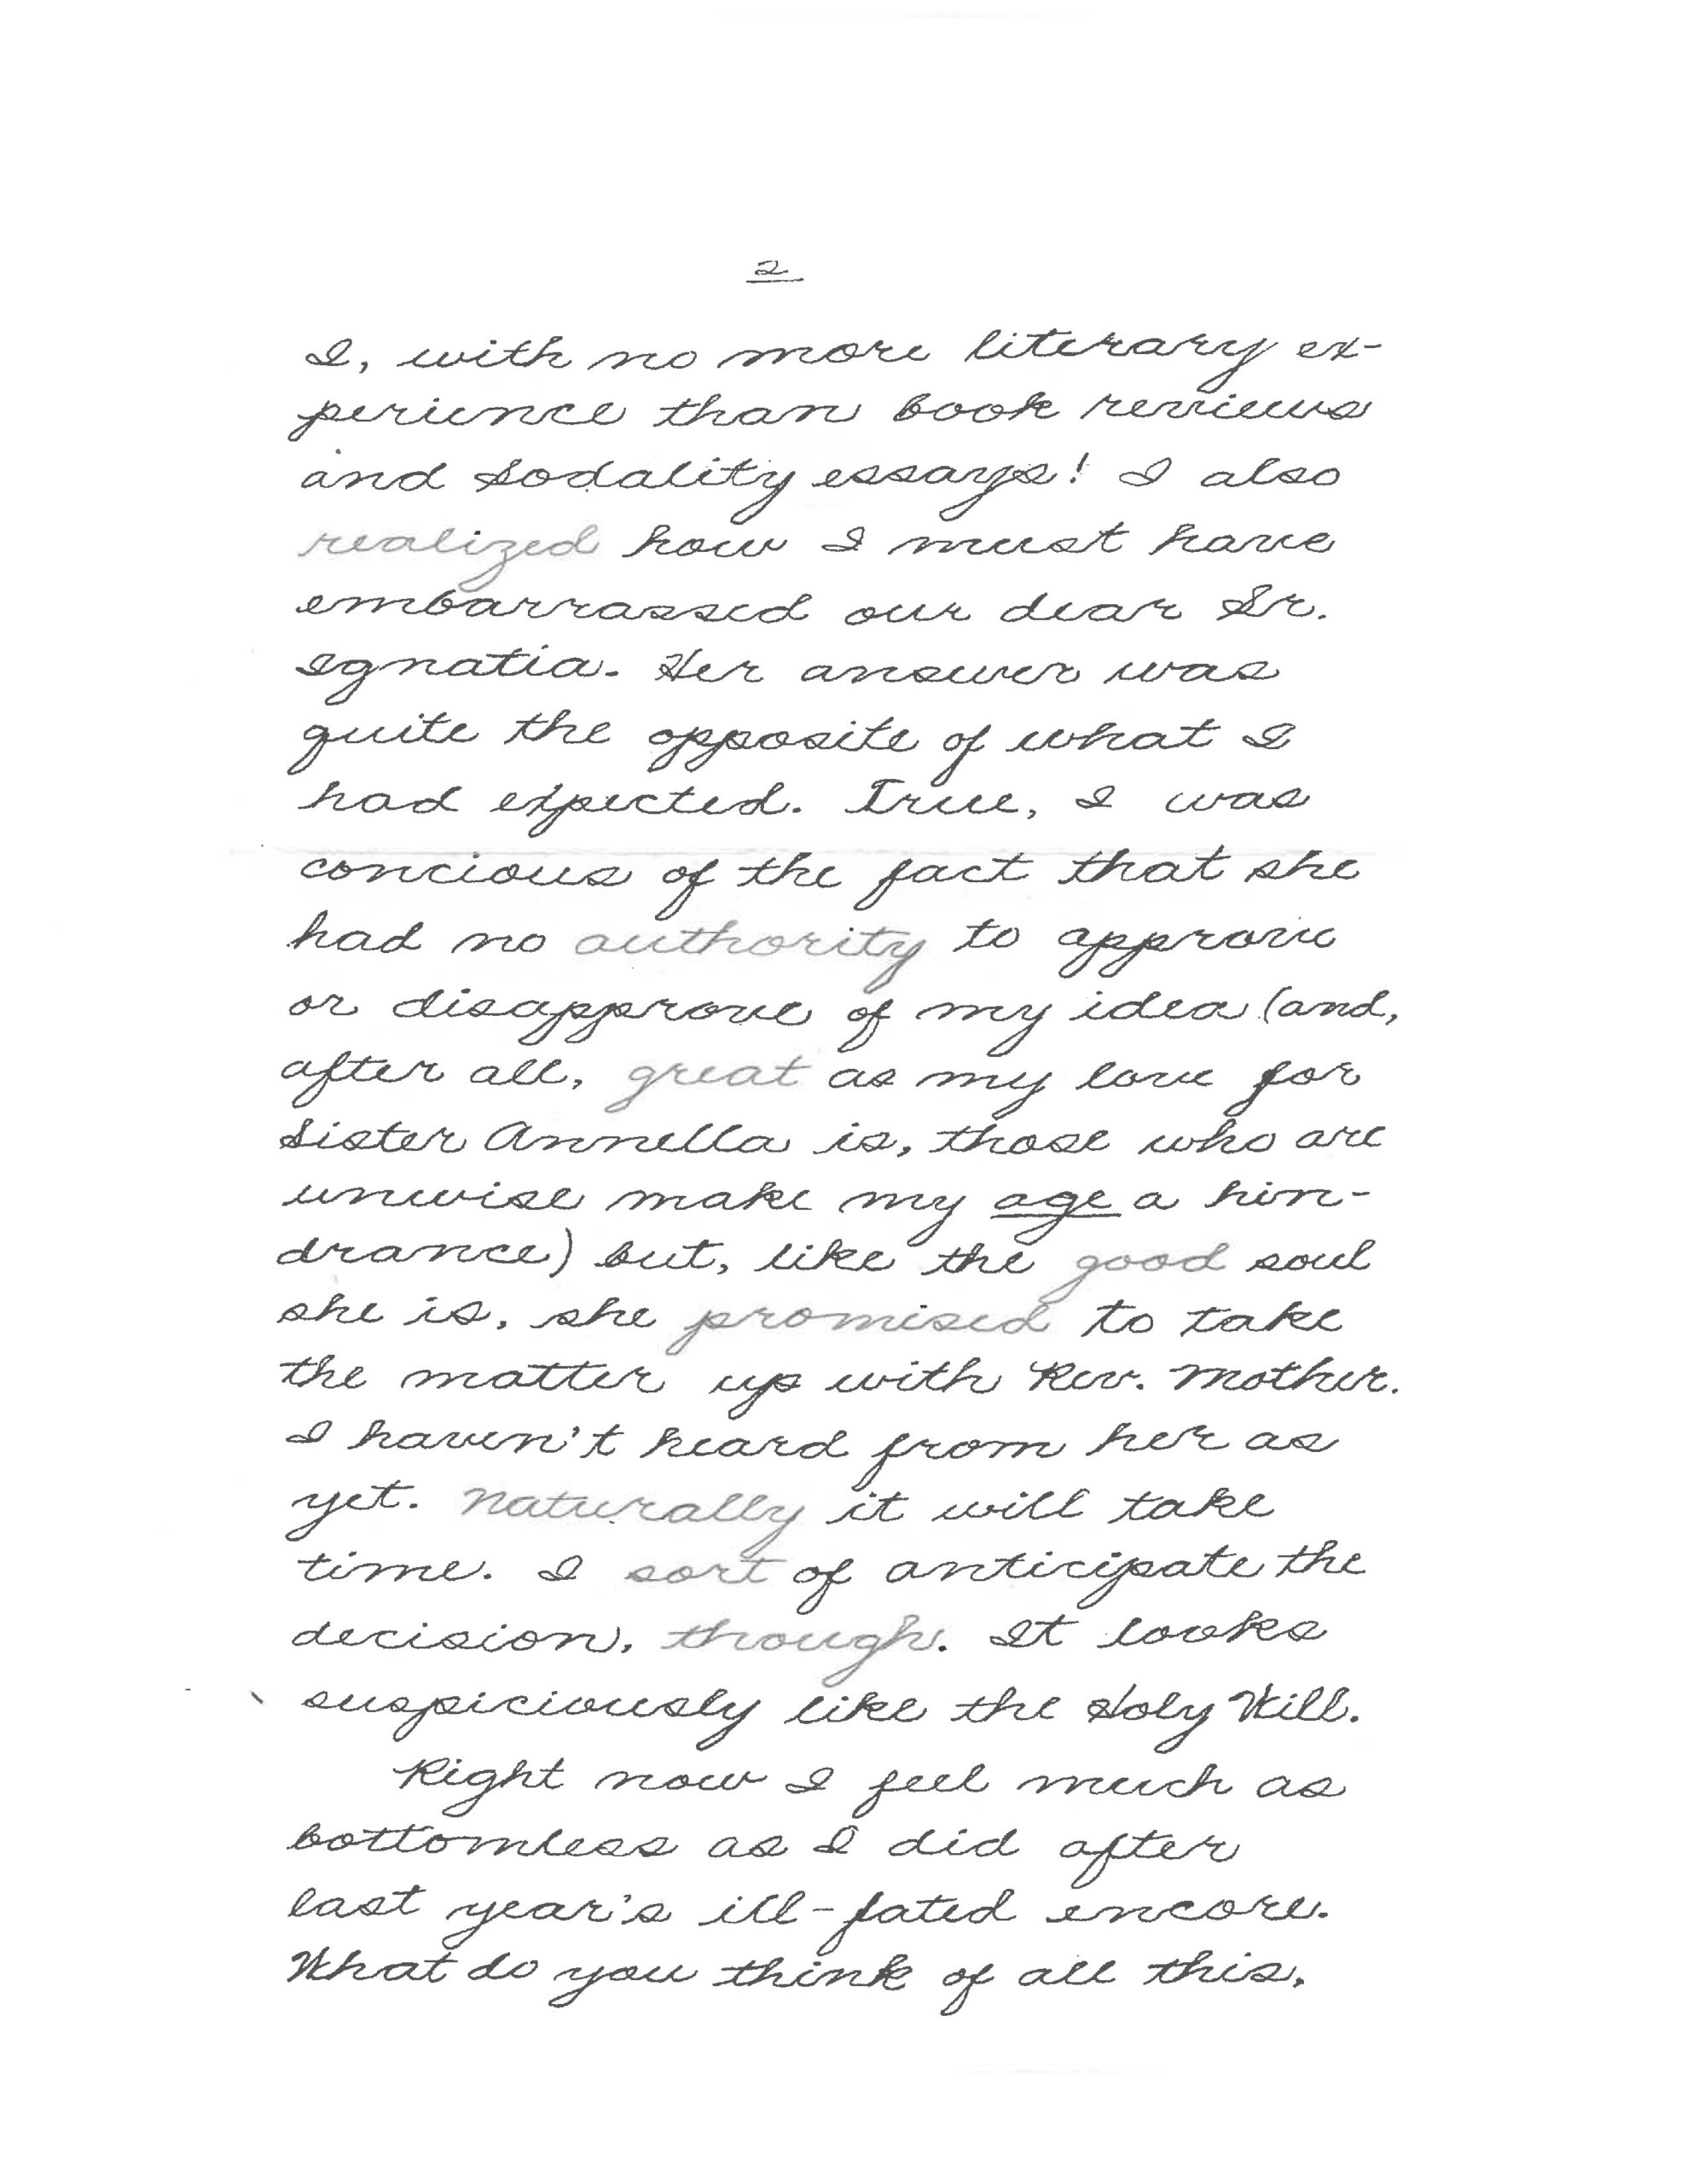 2
I, with no more literary ex-
perience than book reviews
and Sodality essays! I also
realized how I must have
embarrassed our dear Sr.
Ignatia. Her answer was
quite the opposite of what I
had expected. True, I was
concious of the fact that she
had no authority to approve
or disapprove of my idea (and,
after all, great as my love for
Sister Annella is, those who are
unwise make my age a hin-
drance) but, like the good soul
she is, she promised to take
the matter up with Rev. Mother.
I haven't heard from her as
yet. Naturally it will take
time. I sort of anticipate the
decision, though. It looks
suspiciously like the Holy Will.
Right now I feel much as
bottomless as I did after
last year's ill-fated encore.
What do you think of all this,